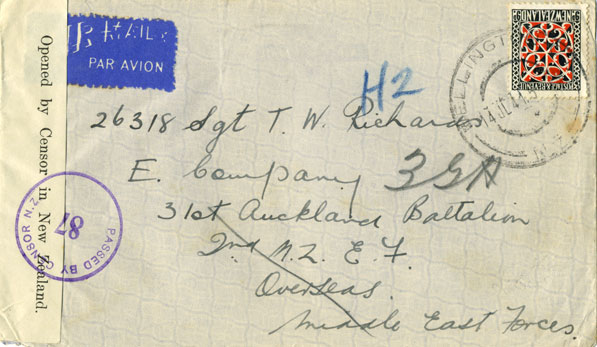 AIR MAIL
PAR AVION
Opened by Censor in New Zealand.
PASSED BY CENSOR N.Z.
87
H2
NEW ZEALAND
POSTAGE & REVENUE
WELLINGTON
N.Z.
26318 Sgt T. W. Richards
E. Company 3GH
31st Auckland Battalion
2nd N.Z. E. F.
Overseas.
Middle East Forces